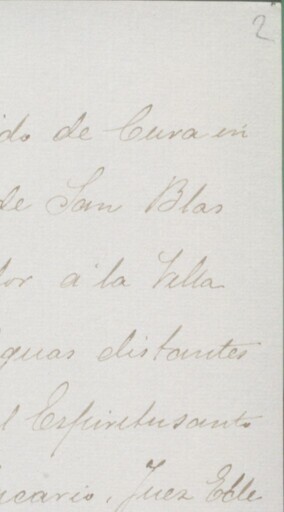 2
ido de Cura en
de San Blas
dor a la Villa
guas distantes
l Espiritusanto
icario, Juez Ecle